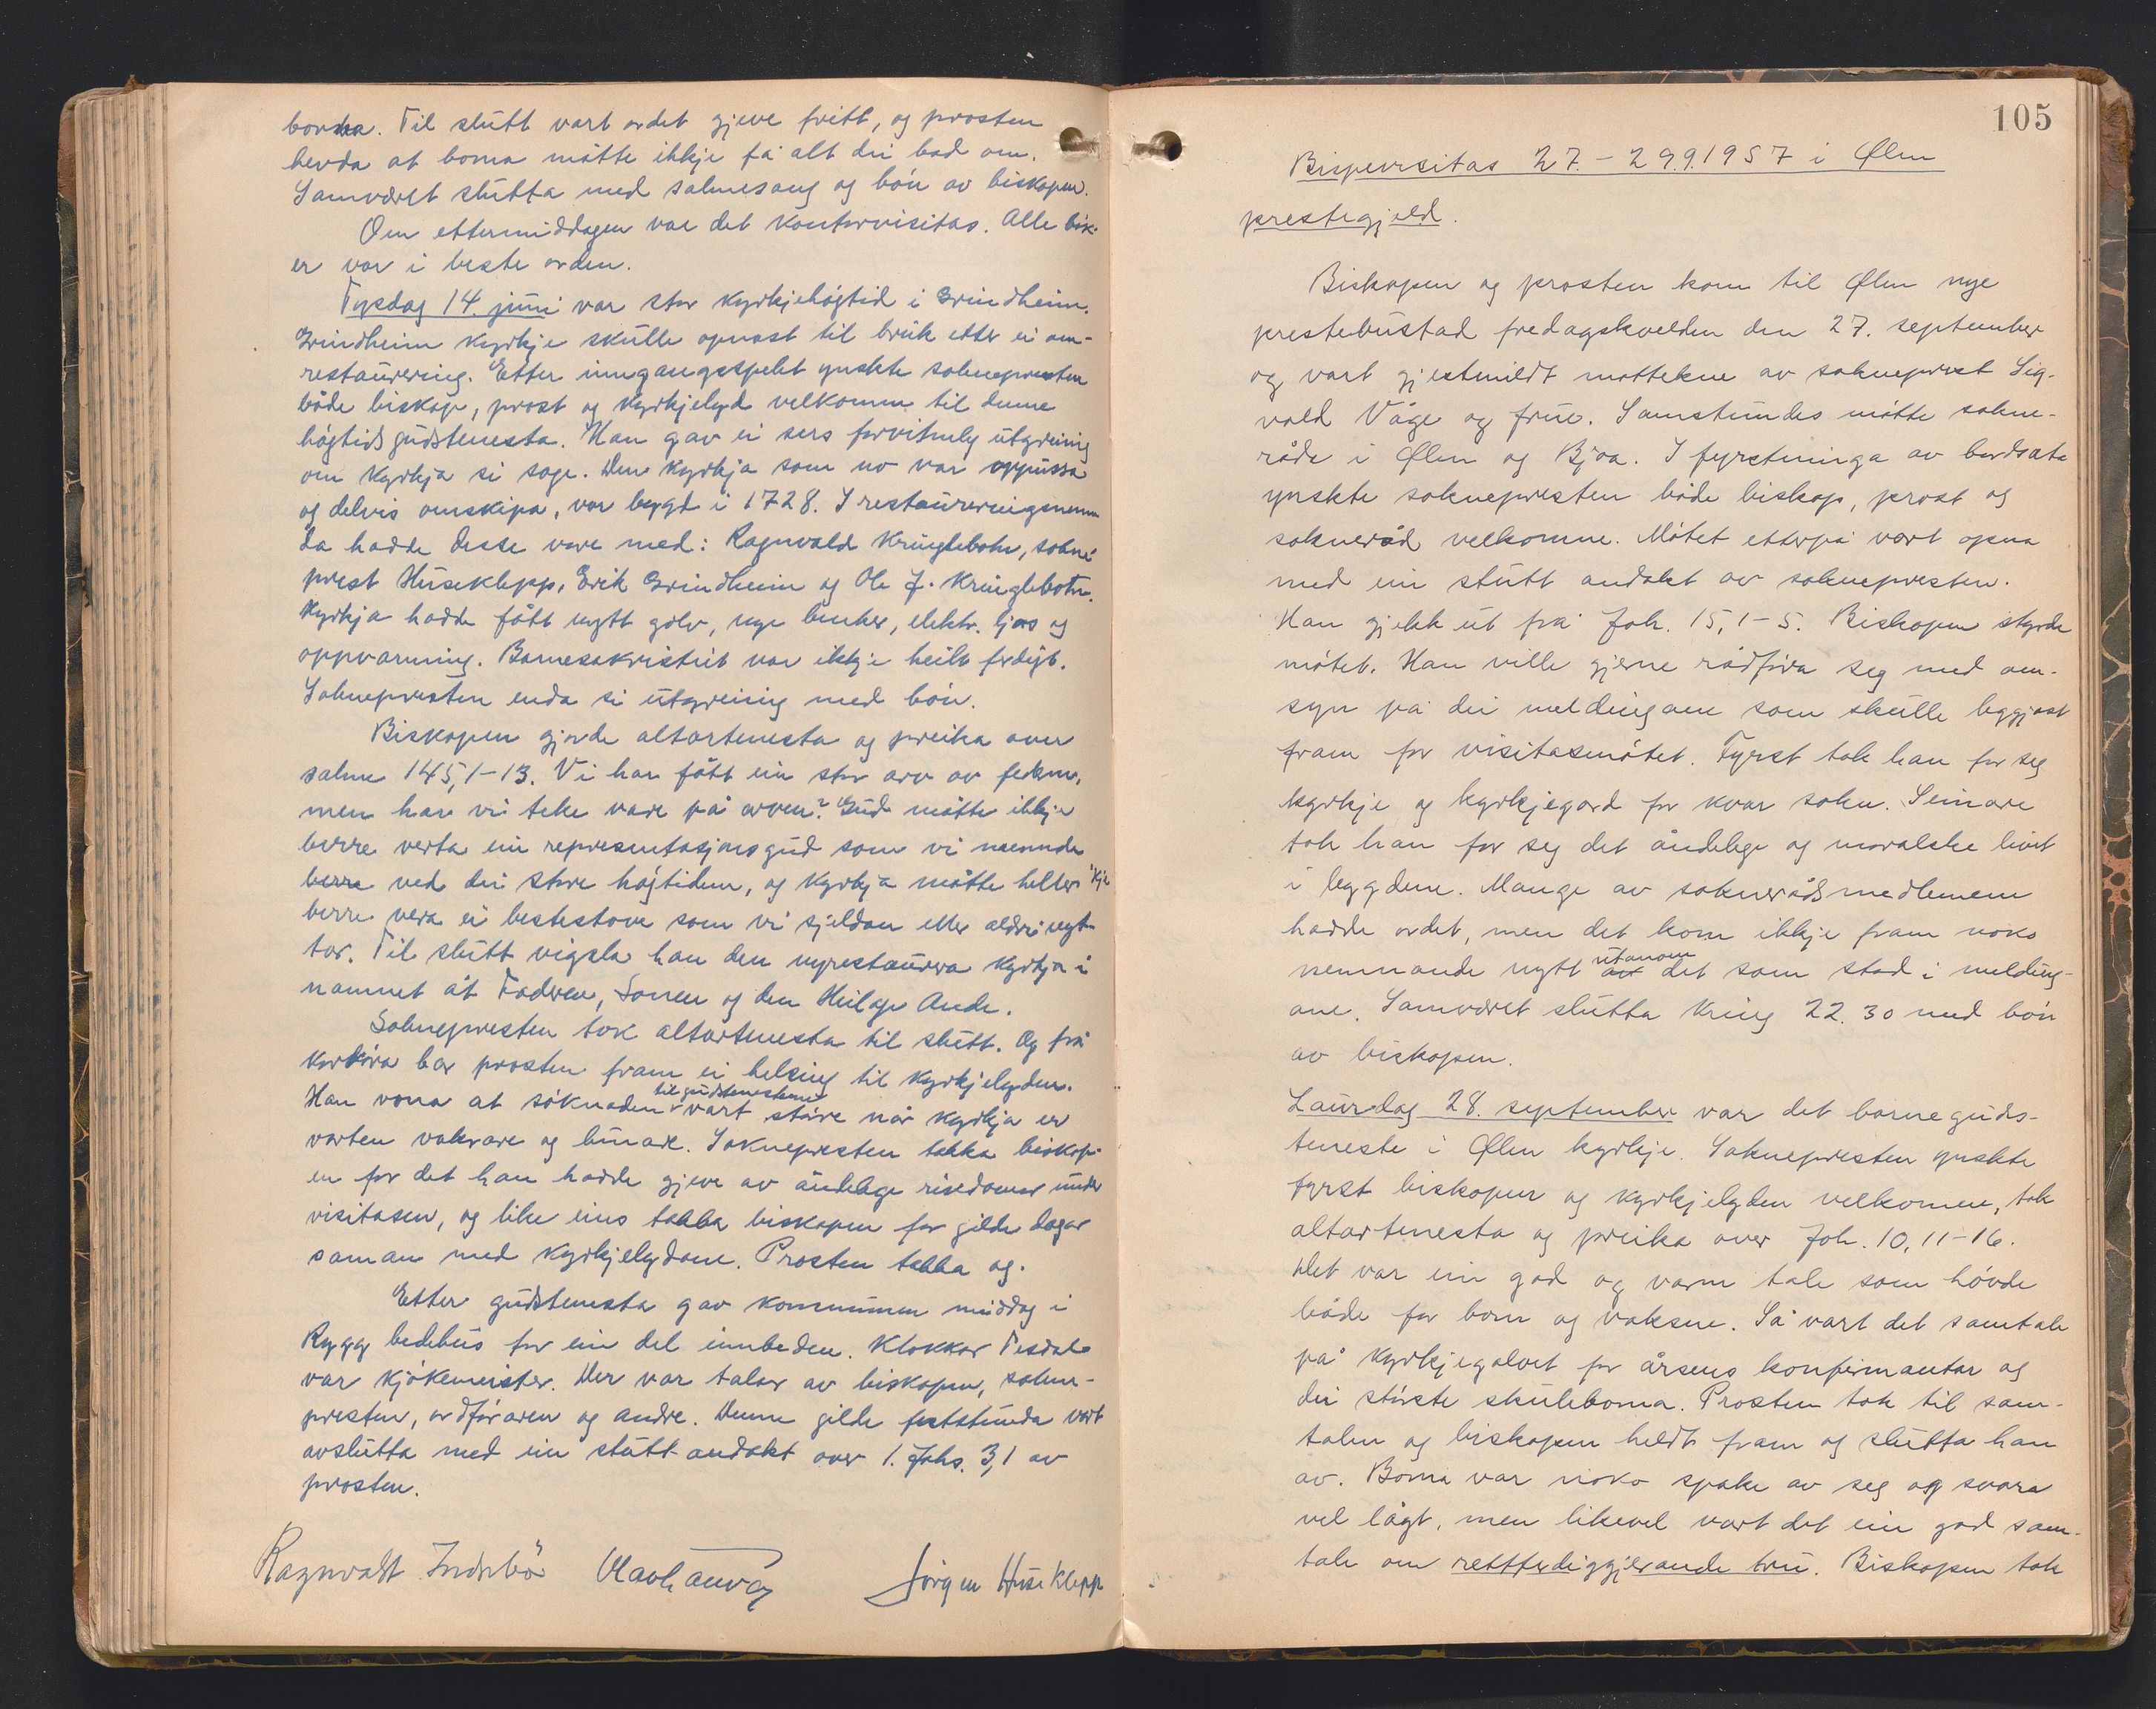 borska. Til slutt vart ordet gjeve fritt, og prosten
hevda at borna måtte ikkje få alt dei bad om.
Samværet slutta med salmesong og bön av biskopen.
Om ettermiddagen var det kontorvisitas. Alle bök-
er var i beste orden.
Tysdag 14. juni var stor kyrkjehögtid i Grindheim.
Grindheim kyrkje skulle opnast til bruk etter ei om-
restaurering. Etter inngangsspelet ynskte soknepresten
både biskop, prost og kyrkjelyd velkomne til denne
högtidsgudstenesta. Han gav ei sers forvitneleg utgreiing
om kyrkja si soge. Den kyrkja som no var oppussa
og delvis omskipa, var bygd i 1728. I restaureringsnemn
da hadde desse vore med: Ragnvald Kringlebotn, sokne-
prest Huseklepp, Erik Grindheim og Ole J. Kringlebotn.
Kyrkja hadde fått nytt golv, nye benker, elektr. ljos og
oppvarming. Barnesakristiet var ikkje heilt ferdigt.
Soknepresten enda si utgreiing med bön.
Biskopen gjorde altartenesta og preika over
salme 145,1-13. Vi har fått ein stor arv av fedrene,
men har vi teke vare på arven? Gud måtte ikkje
berre verta ein representasjonsgud som vi nemnde
berre ved dei store högtidene, og kyrkja måtte heller 'kje
berre vera ei bestestove som vi sjeldan eller aldri nyt-
tar. Til slutt vigsla han den nyrestaurera kyrkja i
namnet åt Faderen, Sonen og den Heilage Ande.
Soknepresten tok altartenesta til slutt. Og frå
kordöra bar prosten fram ei helsing til kyrkjelyden.
Han vona at söknaden til gudstenestene vart större når kyrkja er
vorten vakrare og lunare. Soknepresten takka biskop-
en for det han hadde gjeve av åndelege rikdomar under
visitasen, og like eins takka biskopen for gilde dagar
saman med kyrkjelydane. Prosten takka og.
Etter gudstenesta gav kommunen middag i
Rygg bedehus for ein del innbedne. Klokkar Tesdal
var kjökemeister. Der var talar av biskopen, sokne-
presten, ordföraren og andre. Denne gilde feststunda vart
avslutta med ein stutt andakt over 1. Johs. 3,1 av
prosten.
Ragnvald Indrebö Olav Jörgen Huseklepp
105
Bispevisitas 27.-29.9.1957 i Ølen
prestegjeld.
Biskopen og prosten kom til Ølen nye
prestebustad fredagskvelden den 27. september
og vart gjestmildt mottekne av sokneprest Sig-
vald Våge og frue. Samstundes mötte sokne-
råda i Ølen og Bjoa. I fyrstninga av bordseta
ynskte soknepresten både biskop, prost og
sokneråd velkomne. Mötet etterpå vart opna
med ein stutt andakt av soknepresten.
Han gjekk ut frå Joh. 15,1-5. Biskopen styrde
mötet. Han ville gjerne rådföra seg med om-
syn på dei meldingane som skulle leggjast
fram for visitasmötet. Fyrst tok han for seg
kyrkje og kyrkjegard for kvar sokn. Seinare
tok han for seg det åndelege og moralske livet
i bygdene. Mange av soknerådsmedlemene
hadde ordet, men det kom ikkje fram noko
nemnande nytt utanom det som stod i melding-
ane. Samværet slutta kring 22.30 med bön
av biskopen.
Laurdag 28. september var det barneguds-
teneste i Ølen kyrkje. Soknepresten ynskte
fyrst biskopen og kyrkjelyden velkomne, tok
altartenesta og preika over Joh. 10,11-16.
Det var ein god og varm tale som hövde
både for born og vaksne. Så vart det samtale
på kyrkjegolvet for årsens konfirmantar og
dei störste skuleborna. Prosten tok til sam-
talen og biskopen heldt fram og slutta han
av. Borna var noko spake av seg og svara
vel lågt, men likevel vart det ein god sam-
tale om rettferdiggjerande tru. Biskopen tok